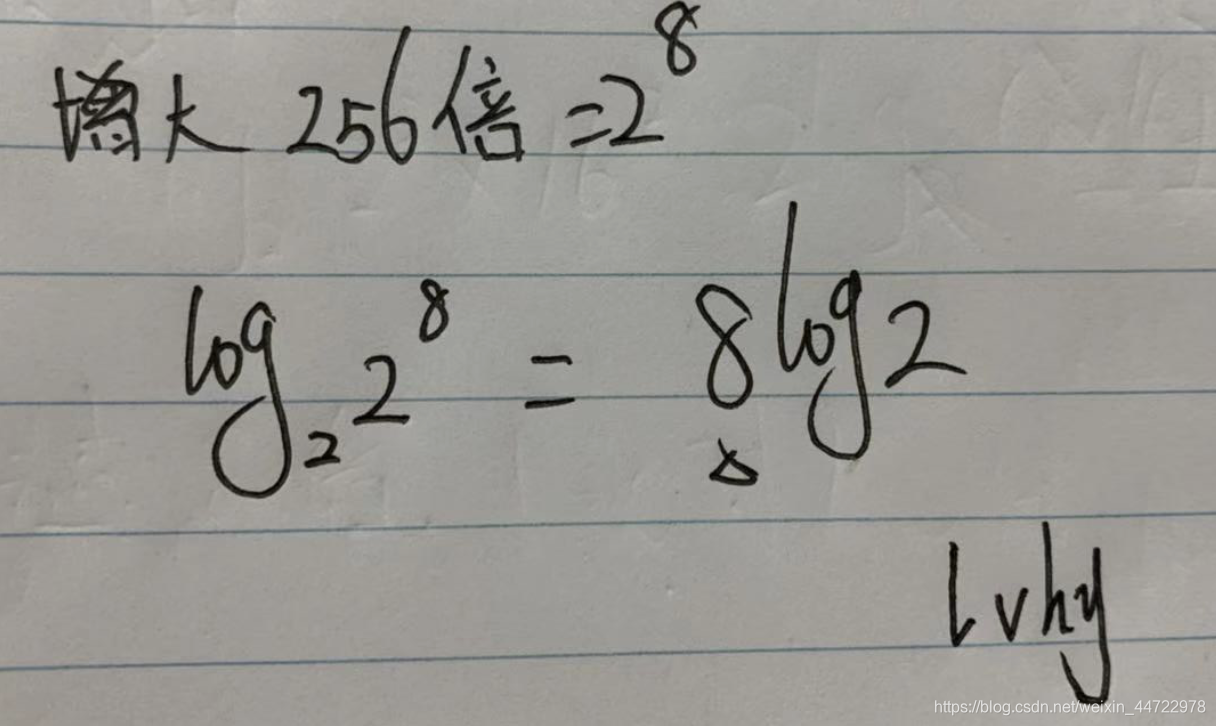 增大 256倍 =2⁸
log₂2⁸ = 8log2
lvhy
https://blog.csdn.net/weixin_44722978